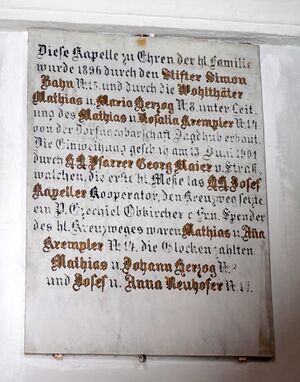 Diese Kapelle zu Ehren der hl. Familie
wurde 1896 durch den Stifter Simon
Hahn Nr. 15. und durch die Wohlthäter
Mathias u. Maria Herzog Nr. 8. unter Leit
ung des Mathias u. Rosalia Krempler Nr. 14.
von der Dorfnacobarschaft Jagdhub erbaut.
Die Einweihung geschag am 13. Juli 1901
durch HH Pfarrer Georg Maier v. Straß
walchen, die erst hl. Meße las HH Josef
Kapeller Kooperator, den Kreuzweg setzte
ein P. Ezechiel Obkircher v. Spender
des hl. Kreuzweges waren Mathias u. Ana
Krempler Nr. 14. die Glocken zahlten
Mathias u. Johann Herzog Nr. 8
und Josef u. Anna Neuhofer Nr. 17.